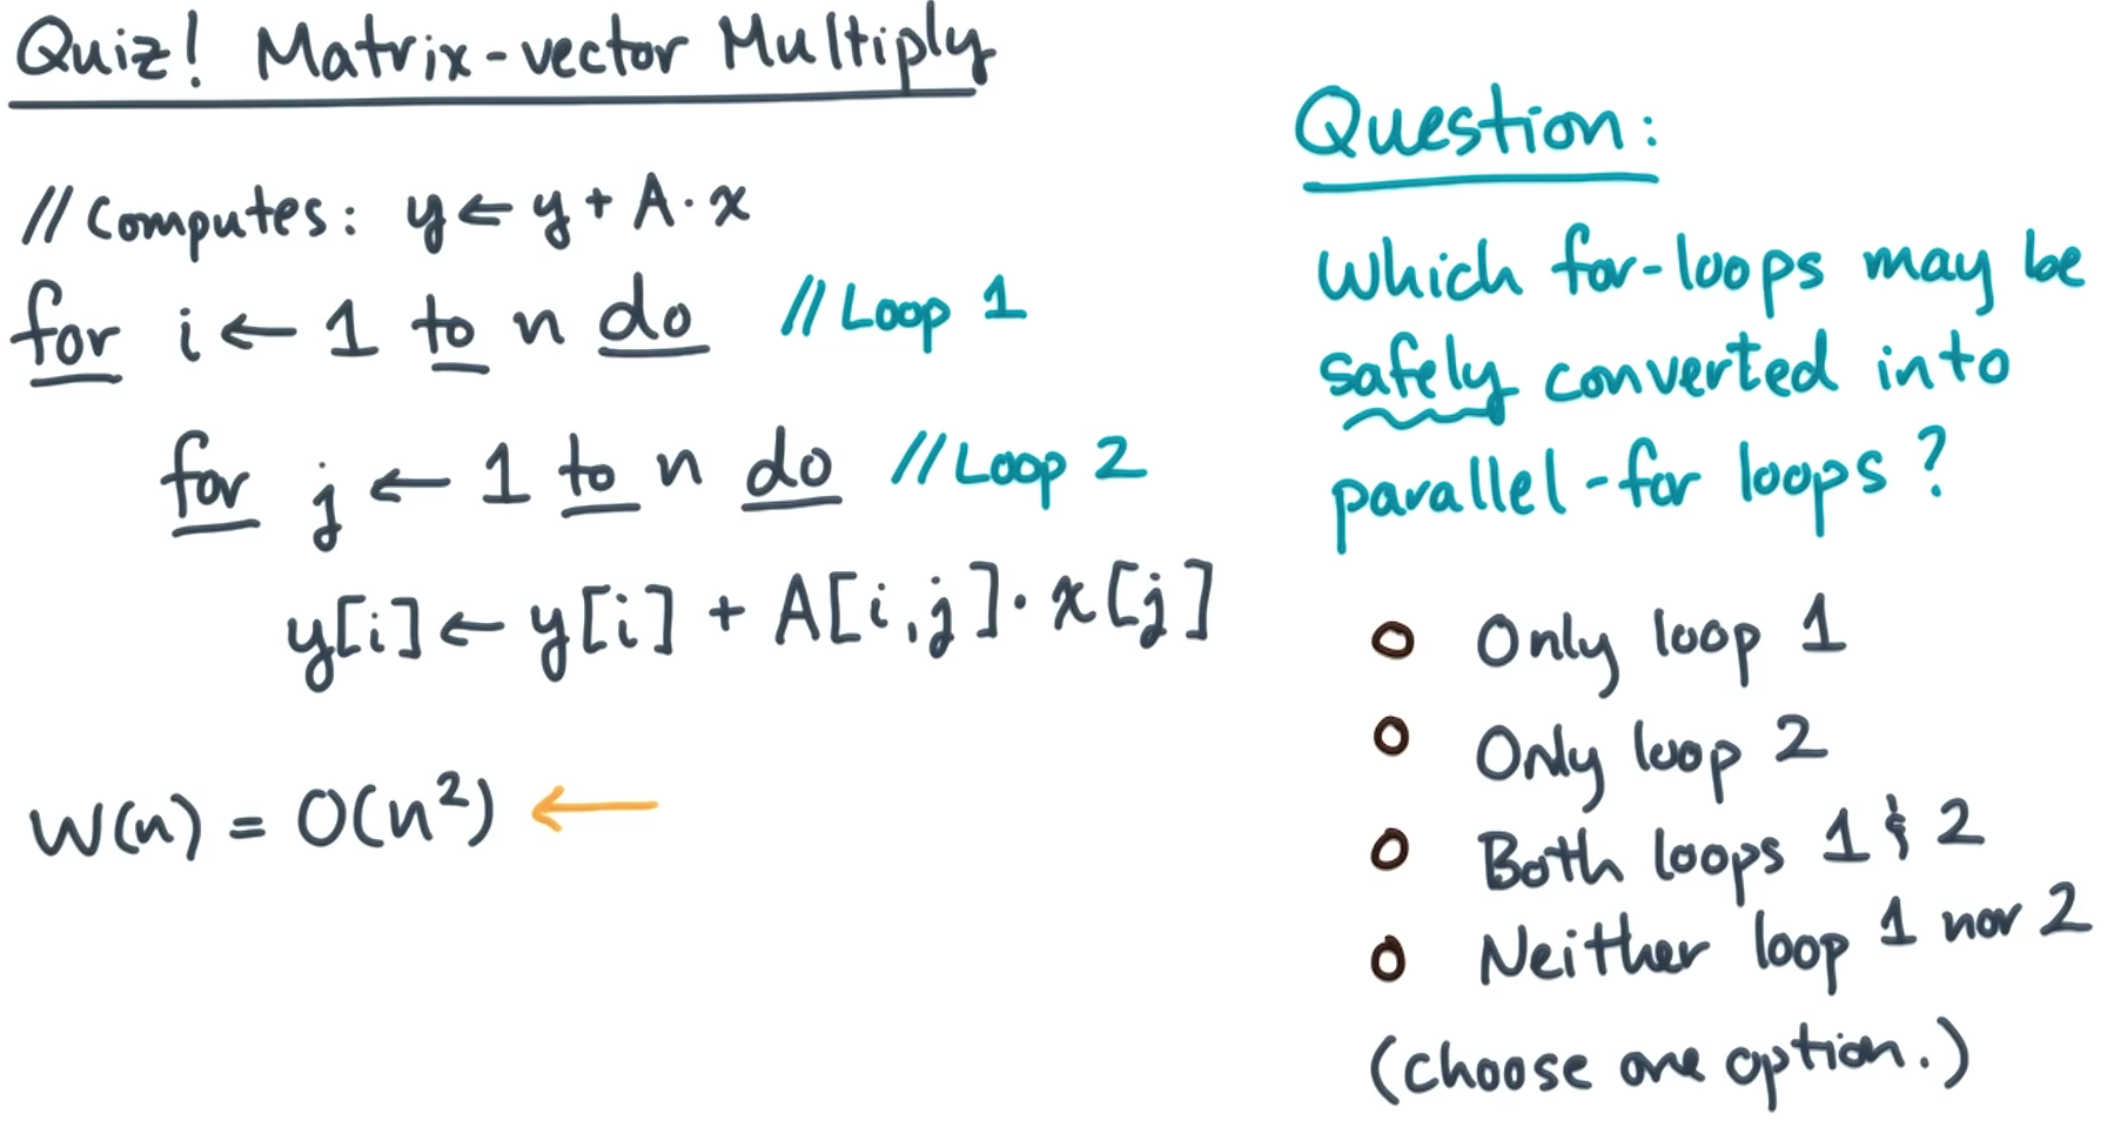 Quiz! Matrix-vector Multiply
// Computes: y ← y + A · x
for i ← 1 to n do // Loop 1
for j ← 1 to n do // Loop 2
y[i] ← y[i] + A[i,j] · x[j]
W(n) = O(n²) ←
Question:
Which for-loops may be
safely converted into
parallel-for loops?
o Only loop 1
o Only loop 2
o Both loops 1 & 2
o Neither loop 1 nor 2
(choose one option.)